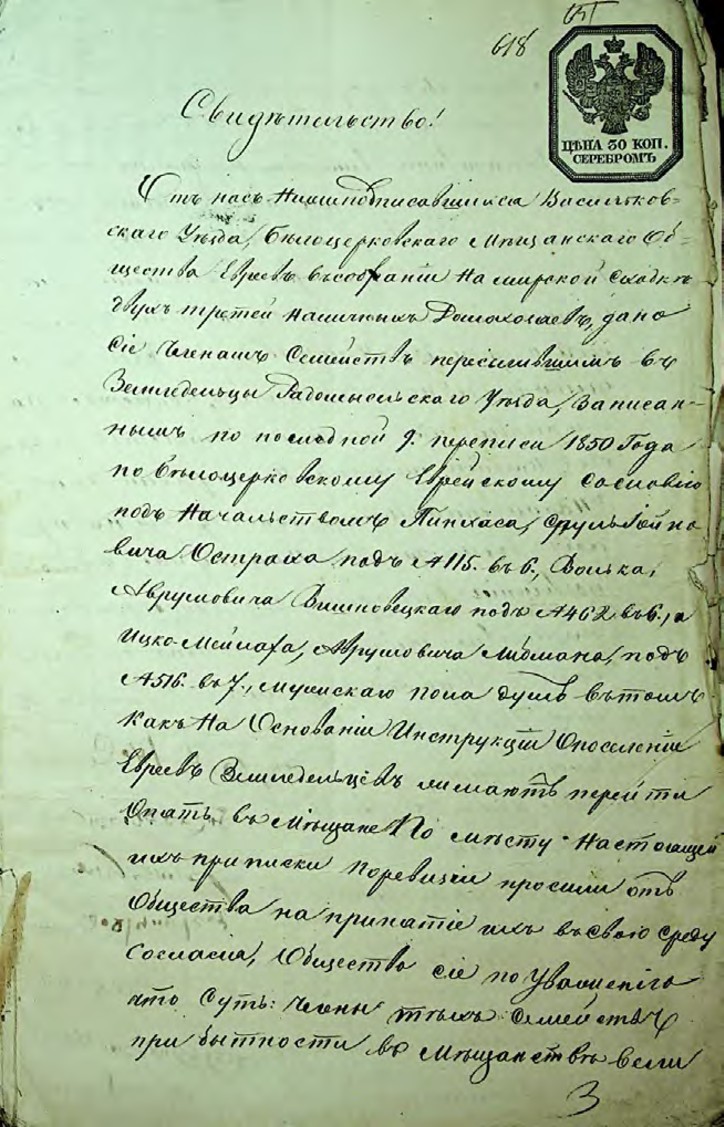 618
ЦѢНА 30 КОП.
СЕРЕБРОМЪ
Свидѣтельство!
Отъ насъ Нижеподписавшихся Васильков-
скаго Уѣзда, Бѣлоцерковскаго Мѣщанскаго Об-
щества Евреевъ въ собраніи На мирской Сходкѣ
двухъ третей Наличныхъ Домохозяевъ, дано
сіе Членамъ Семействъ переселившимъ въ
Земледельцы Радомысльскаго Уѣзда, Записан-
нымъ по последной 9. переписи 1850 Года
по Бѣлоцерковскому Еврейскому Сословію
подъ Начальствомъ Пинхаса, Сруль
вича Остраха подъ № 115. въ 6., Волька,
Аврумовича Вишновецкаго подъ № 462 въ 6., и
Ицко-Мейлаха, Аврумовича подъ
№ 516. въ 7., Мужскаго пола душъ въ томъ
Какъ На Основаніи Инструкціи О поселеніи
Евреевъ Земледельцевъ желаютъ перейти
Опять въ Мѣщане По мѣсту Настоящей
ихъ приписки По ревизіи просили отъ
Общества на принятіе ихъ въ свою среду
Согласія, Общество сіе по Уваженію
что Суть: Члены тѣхъ Семействъ
при бытности въ Мѣщанствѣ вели
3